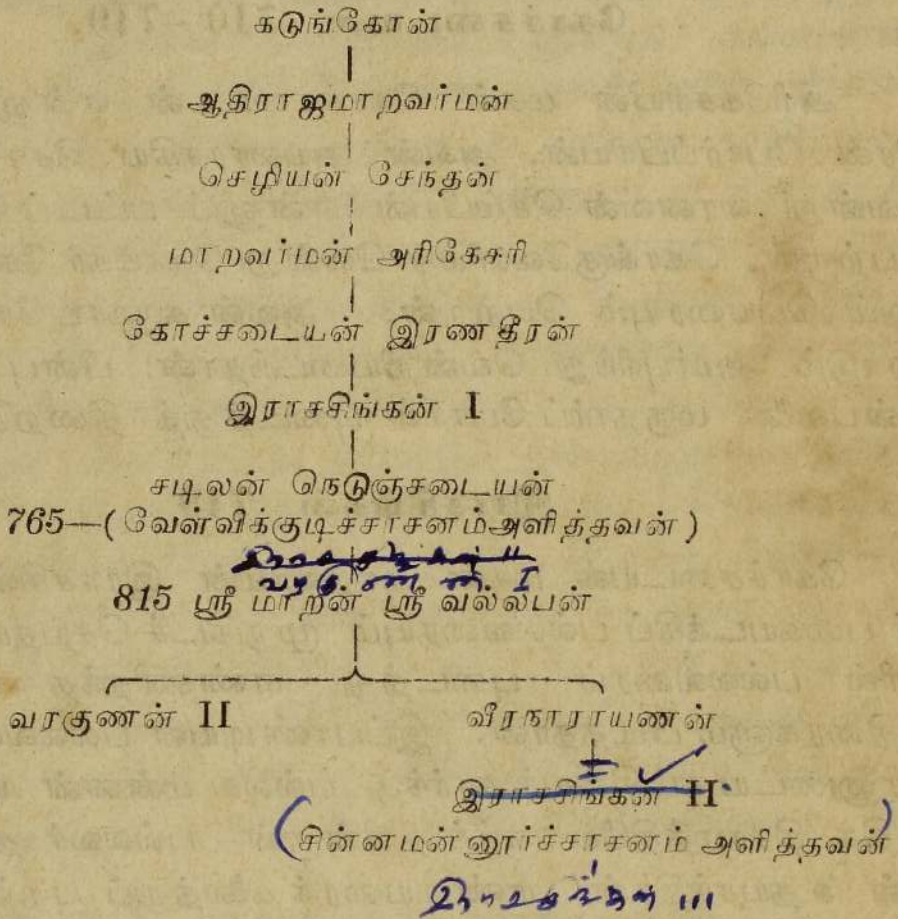 கடுங்கோன்
ஆதிராஜமாறவர்மன்
செழியன் சேந்தன்
மாறவர்மன் அரிகேசரி
கோச்சடையன் இரணதீரன்
இராசசிங்கன் I
சடிலன் நெடுஞ்சடையன்
765—(வேள்விக்குடிச்சாசனம்அளித்தவன்)
வரகுணன் I
815 ஸ்ரீ மாறன் ஸ்ரீ வல்லபன்
வரகுணன் II வீரநாராயணன்
இராசசிங்கன் II
(சின்னமன்னூர்ச்சாசனம் அளித்தவன்)
இராசசிங்கன் III